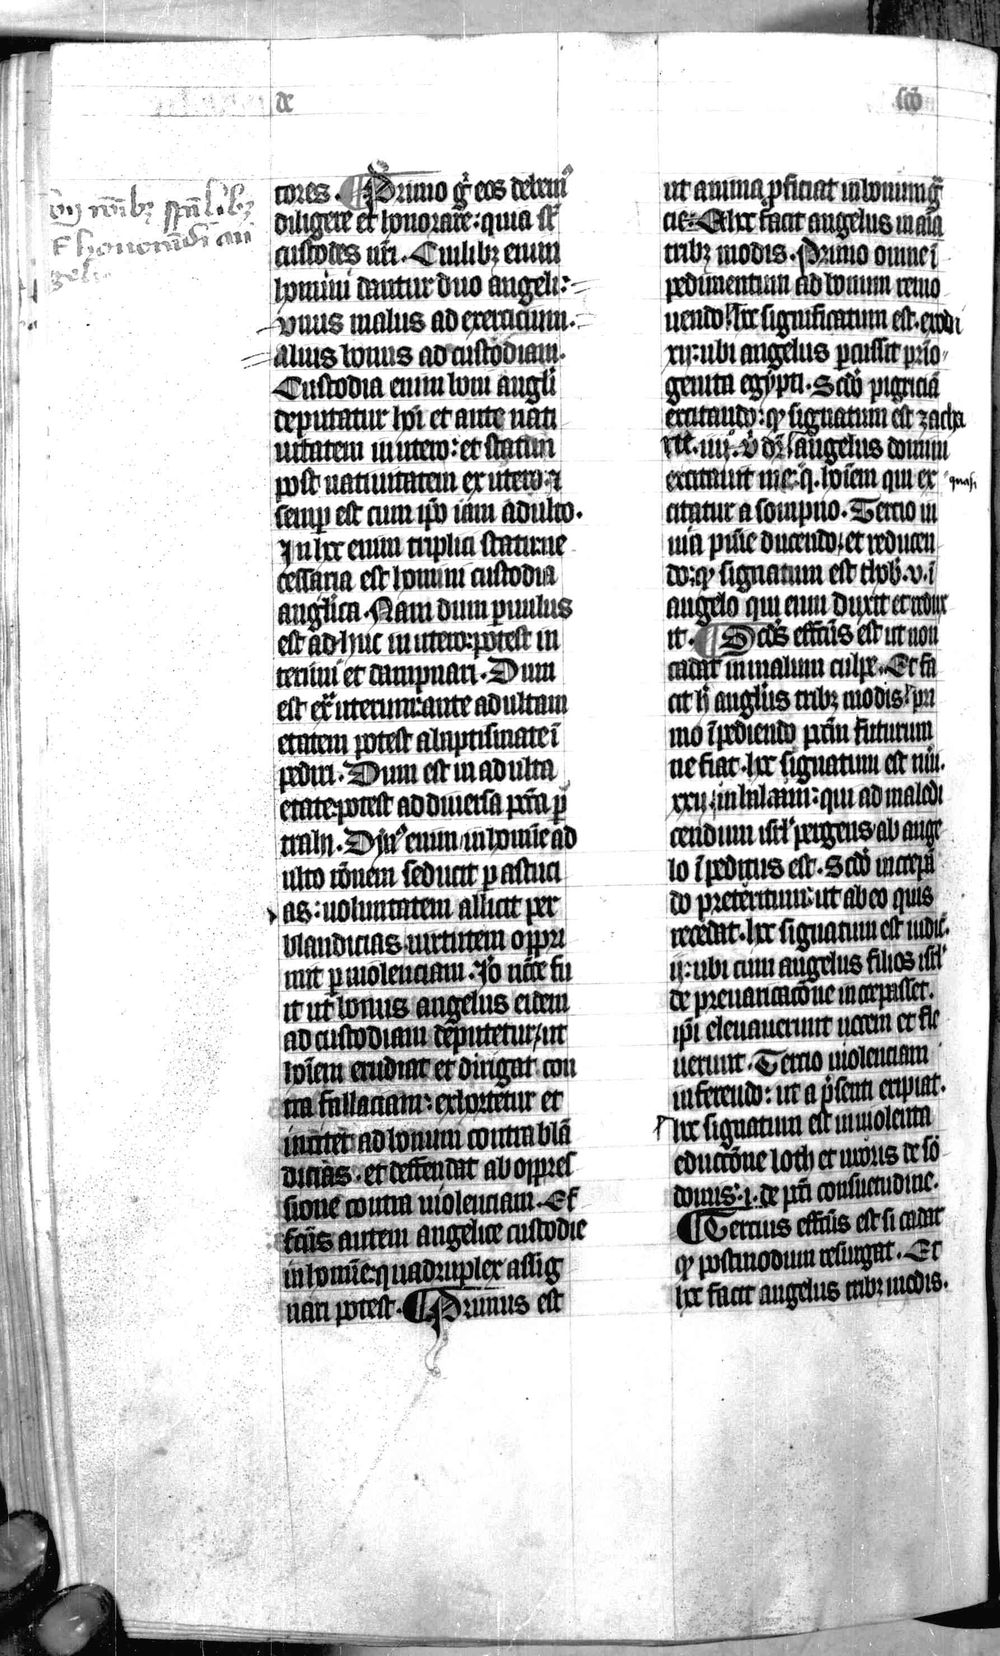 de
scō
tores. ¶ Primo gͦ eos debemꝰ
diligere et honorare: quia sūt
custodes nr̄i. Cuilibꝫ enim
homini dantur duo angeli:
vnus malus ad exercicium.
alius bonus ad custodiam.
Custodia enim boni angl̄i
deputatur hōi et ante nati
uitatem in utero: et statim
post natiuitatem ex utero: ⁊
semꝑ est cum ip̄o iam adulto.
In hoc enim triplici statu ne
cessaria est homini custodia
angl̄ica. Nam dum ꝑuulus
est adhuc in utero: potest in
terimi et dampnari. Dum
est extͣ uterum: ante adultam
etatem potest a baptismate ī
pediri. Dum est in adulta
etate: potest ad diuersa pctā ꝑ
trahi. Dyaꝰ enim in homīe ad
ulto rōnem seducit ꝑ astuci
as: uoluntatem allicit per
blandicias uirtutem oppri
mit ꝑ uiolenciam. Iō ncc̄e fu
it ut bonus angelus eidem
ad custodiam deputetur, ut
hoīem erudiat et dirigat con
tra fallaciam: exhortetur et
incitet ad bonum contra blā
dicias. et deffendat ab oppres
sione contra uiolenciam. Ef
fctūs autem angelice custodie
in homīe: quadruplex assig
nari potest. ¶ Primus est
ut anima ꝓficiat in bonum grͣ
cie. Et hoc facit angelus in aīa
tribꝫ modis. Primo omne ī
pedimentum ad bonum remo
uendo. hoc significatum est. exodi
xij: ubi angelus ꝑcussit prīo
genita egypti. Scdō pigriciā
excitando: ꝙ signatum est zacha
rie. iiij. v̄ dr̄. angelus domini
excitauit me: q̄. hoīem qui ex
quasi
citatur a sompno. Tercio in
uia pn̄ie ducendo, et reducen
do: ꝙ signatum est thob̄. v. ī
angelo qui eum duxit et redux
it. ¶ Scd̄s effctūs est ut non
cadat in malum culpe. Et fa
cit h̄ angl̄us tribꝫ modis. pri
mo īpediendo pctm̄ futurum
ne fiat. hoc signatum est nūi.
xxij. in balaam: qui ad maledi
cendum isrl̄ pergens ab ange
lo īpeditus est. Scdō increpā
do preteritum: ut ab eo quis
recedat. hoc signatum est iudic̄.
ij: ubi cum angelus filios isrl̄
de preuaricacōne increpasset.
ip̄i eleuauerunt uocem et fle
uerunt. Tercio uiolenciam
inferendo: ut a p̄senti eripiat.
hoc signatum est in uiolenta
eductōne loth et uxoris de so
domis. i. de pctī consuetudine.
¶ Tercius effctūs est si cadat
ꝙ postmodum resurgat. Et
hoc facit angelus tribꝫ modis.